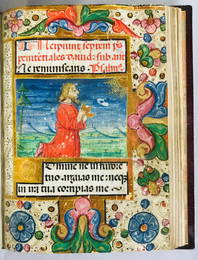 Incipiunt septem ps
penitentiales dauid: sub ant
Ne reminiscaris. Psalm⁹
Domine ne in furore
tuo arguas me: neq;
in ira tua corripias me